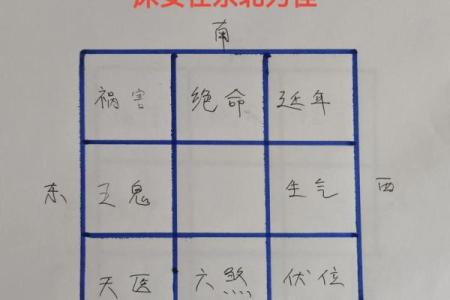 南
祸害 绝命 延年
东 五鬼 生气 西
天医 六煞 伏位